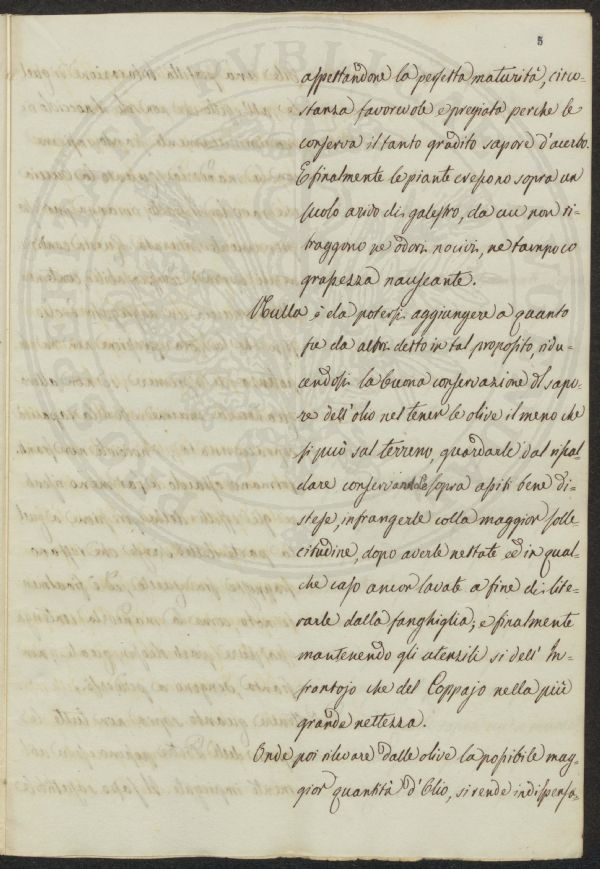 5
aspettandone la perfetta maturità, circo-
stanza favorevole e pregiata perche le
conserva il tanto gradito sapore d'acerbo.
E finalmente le piante crescono sopra un
suolo arido di galestro, da cui non ri-
traggono ne odori nocivi, ne tampoco
grassezza nauseante.
Nulla è da potersi aggiungere a quanto
fu da altri detto in tal proposito, ridu-
cendosi la buona conservazione del sapo-
re dell'olio nel tener le olive il meno che
si può sul terreno, guardarle dal riscal-
dare conservandole sopra assiti bene di-
stese, infrangerle colla maggior solle-
citudine, dopo averle nettate ed in qual-
che caso ancor lavate a fine di libe-
rarle dalla fanghiglia; e finalmente
mantenendo gli utensili si dell' In-
frantojo che del Coppajo nella più
grande nettezza.
Onde poi rilevare dalle olive la possibile mag-
gior quantità d'Olio, si rende indispensa-